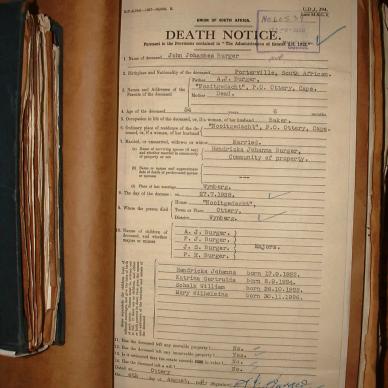 U.D.J. 294.
UNION OF SOUTH AFRICA.
DEATH NOTICE.
Pursuant to the Provisions contained in "The Administration of Estates Act, 1913."
1. Name of deceased John Johannes Burger
2. Birthplace and Nationality of the deceased Porterville, South African.
3. Names and Addresses of the Parents of the deceased
Father A.J. Burger,
"Nooitgedacht", P.O. Ottery, Cape.
Mother Dead.
4. Age of the deceased 54 years 6 months
5. Occupation in life of the deceased, or, if a woman, of her husband Baker.
6. Ordinary place of residence of the deceased, or, if a woman, of her husband "Nooitgedacht", P.O. Ottery, Cape.
7. Married, or unmarried, widower or widow Married.
(a) Name of surviving spouse (if any) and whether married in community of property or not
Hendricka Johanna Burger,
Community of property.
(b) Name or names and approximate date of death of predeceased spouse or spouses
(c) Place of last marriage Wynberg.
8. The day of the decease 27.7.1928.
9. Where the person died
House "Nooitgedacht",
Town or Place Ottery,
District Wynberg.
10. Names of children of deceased, and whether majors or minors
A. J. Burger.
F. J. Burger.
J. S. Burger.
P. E. Burger.
Majors.
Hendricka Johanna born 17.9.1922.
Katrina Gertruida born 8.9.1924.
Schalk William born 26.10.1925.
Mary Wilhelmina born 30.11.1926.
11. Has the deceased left any movable property? No.
12. Has the deceased left any immovable property? Yes.
13. Is it estimated that the estate exceeds £300 in value?
14. Has the deceased left a will? No.
Dated at Ottery
the 4th day of August,